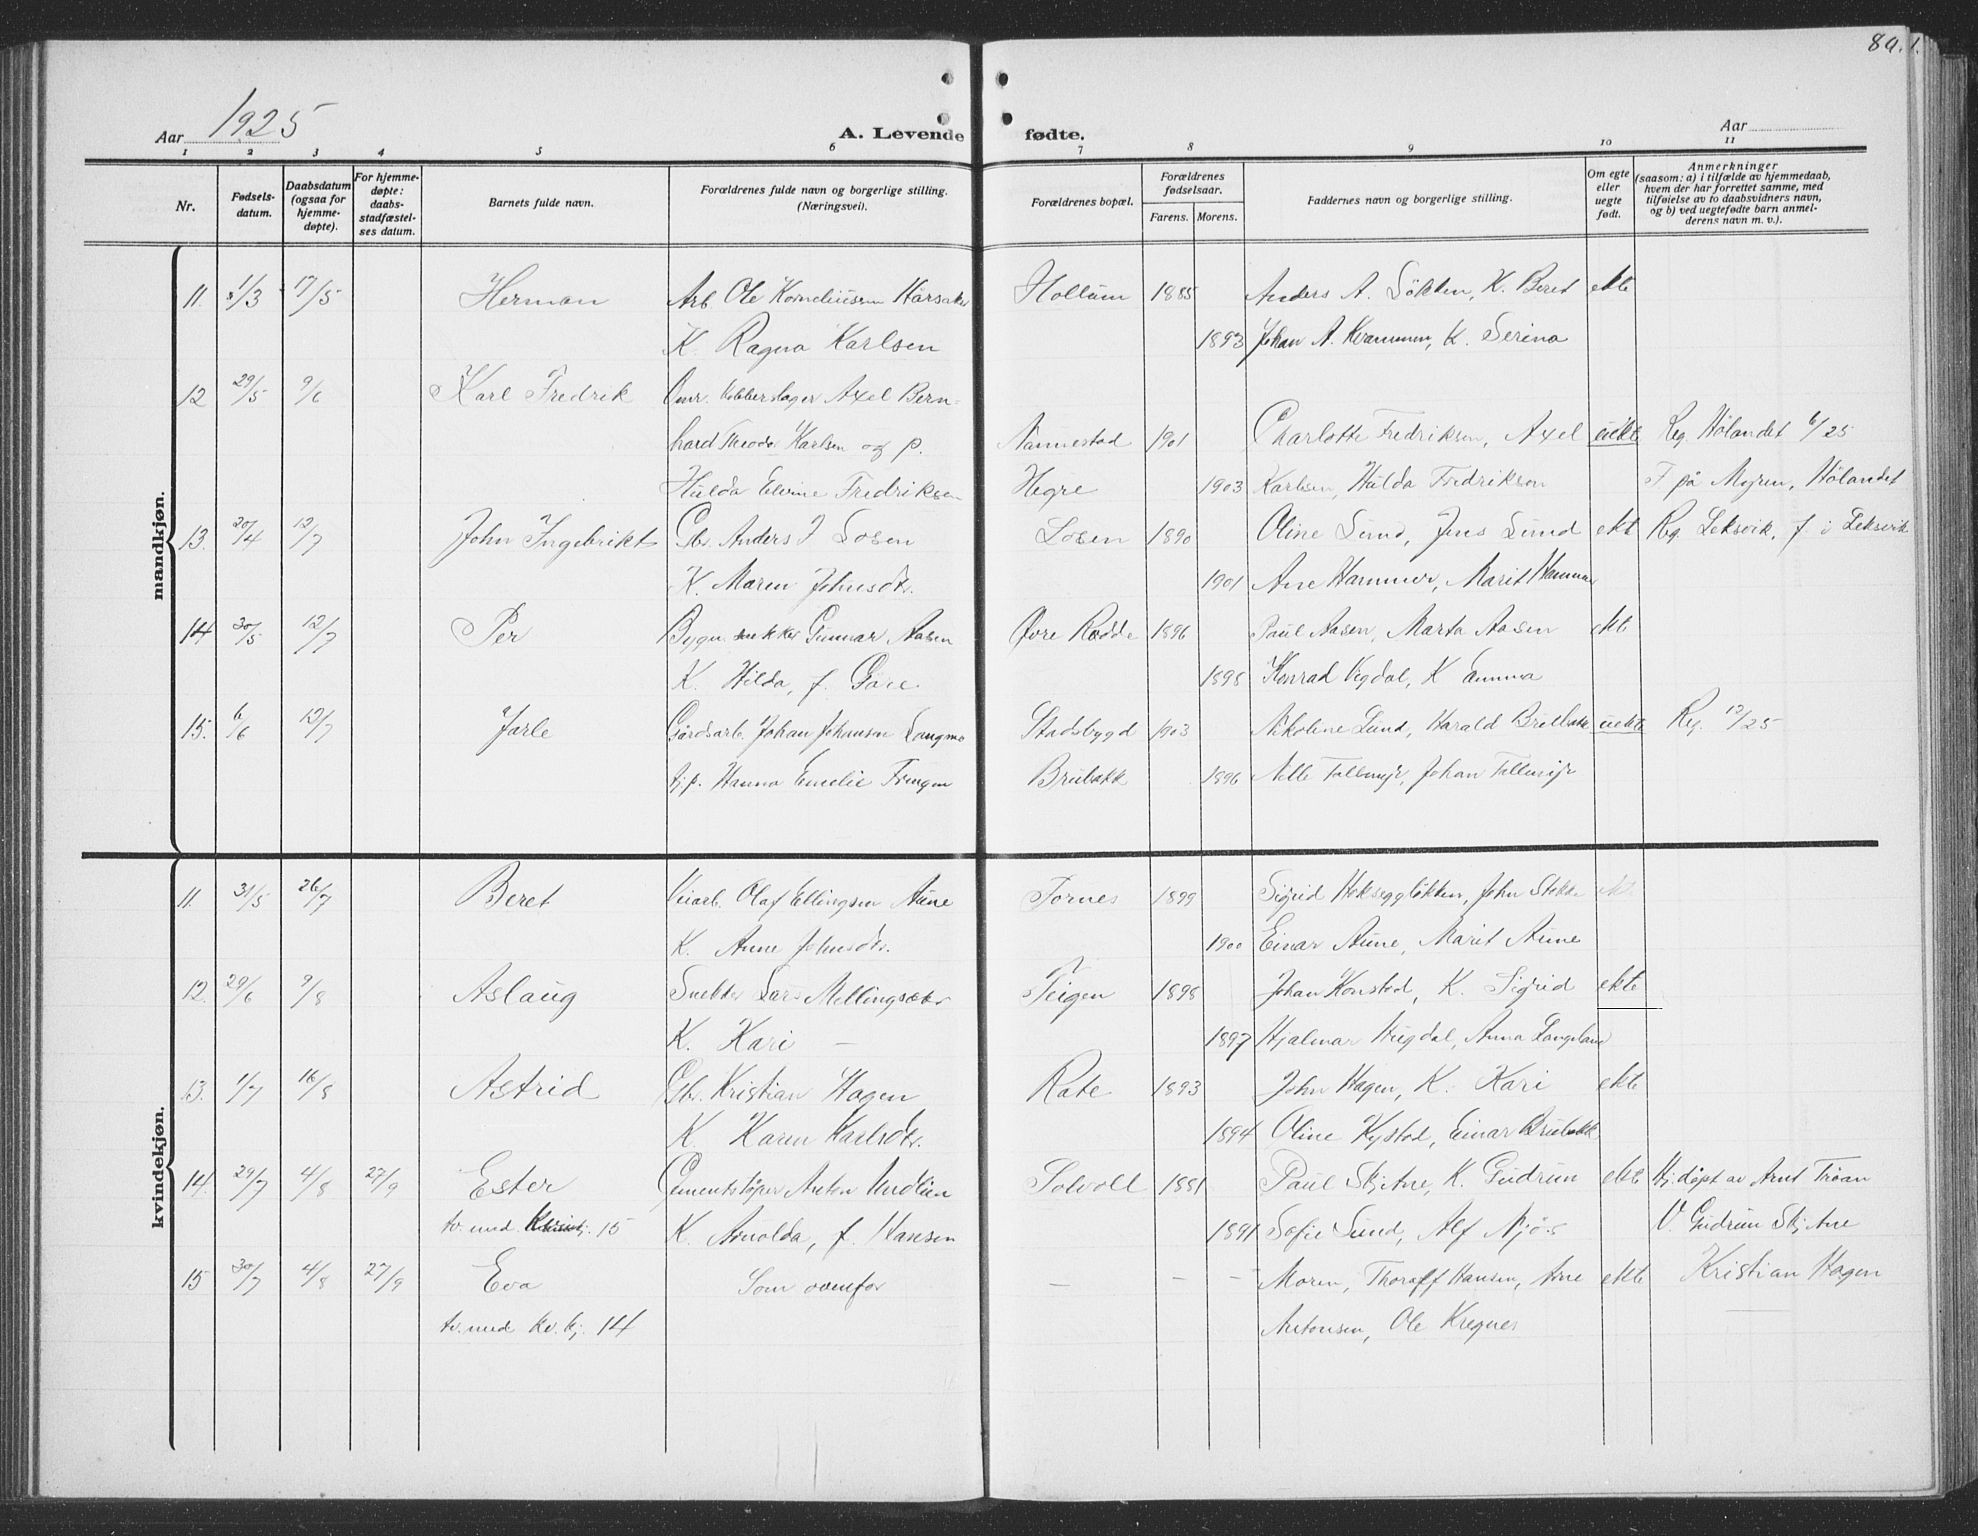 89.1.
Aar 1925
A. Levende fødte.
Aar
1 2 3 4 5 6 7 8 9 10 11
Nr.
Fødselsdatum.
Daabsdatum (ogsaa for hjemmedøpte).
For hjemmedøpte: daabsstadfæstelses datum.
Barnets fulde navn.
Forældrenes fulde navn og borgerlige stilling. (Næringsvei).
Forældrenes bopæl.
Forældrenes fødselsaar.
Farens. Morens.
Faddernes navn og borgerlige stilling.
Om egte eller uegte født.
Anmerkninger
(saasom: a) i tilfælde av hjemmedaab,
hvem der har forrettet samme, med
tilføielse av to daabsvidners navn,
og b) ved uegtefødte barn anmel-
derens navn m. v.).
mandkjøn.
11. 31/3 17/5 Herman Arb. Ole Korneliussen Hårsaker Hollum 1885 Anders A. Løkken, K. Beret ekte
K. Ragna Karlsen 1893 Johan A. Kvammen, K. Serina
12 29/5 9/6 Karl Fredrik Omr. Kobberslager Axel Bern-
hard Theodor Karlsen og p. Nannestad 1901 Charlotte Fredriksen, Axel uekt Reg. Hølandet 6/25
Hulda Elvine Fredriksen Hegre 1903 Karlsen, Hulda Fredriksen F på Myren, Hølandet
13. 20/4 12/7 John Ingebrikt Gbr. Anders J Losen Losen 1890 Oline Lund, Jens Lund ekt Reg. Leksvik, f. i Leksvik
K. Maren Johnsdtr. 1901 Ane Hammer, Marit Hammer
14 30/5 12/7 Per Bygn. snekker Gunnar Aasen Øvre Rødde 1896 Paul Aasen, Marta Aasen ekte
K. Hilda, f. Gåre 1898 Konrad Vigdal, K Emma
15. 6/6 12/7 Jarle Gårdsarb. Johan Johansen Langmo Stadsbygd 1903 Nikoline Lund, Harald Brubakk uekte Reg. 12/25
tj.p. Hanna Emelie Brubakk 1896 Nelle Follmyr, Johan Follmyr
kvindekjøn.
11. 31/5 26/7 Beret Veiarb. Olaf Ellingsen Aune Tornes 1899 Sigrid Hekseggløkken, John Stokke
K. Anne Johnsdtr. 1900 Einar Aune, Marit Aune
12. 29/6 9/8 Aslaug Snekker Lars Mellingsæter Teigen 1898 Johan Konstad, K. Sigrid ekte
K. Kari — 1897 Hjalmar Hugdal, Anna Langeland
13. 1/7 16/8 Astrid Gbr. Kristian Hagen Rate 1893 John Hagen, K. Kari ekte
K. Karen Karlsdtr. 1894 Oline Kystad, Einar Brubakk
14. 29/7 4/8 27/9 Ester Cementstøper Anton Solvoll 1881 Paul Skjetne, K. Gudrun ekte Hj. døpt av Arnt Trøan
tv. med 15 K. Arnolda, f. Hansen 1891 Sofie Lund, Alf Njøs V. Gudrun Skjetne
15 30/7 4/8 27/9 Eva Som ovenfor — — — Moren, Thoralf Hansen, Arne ekte Kristian Hagen
tv. med kv. kj. 14 Antonsen, Ole Kregnes